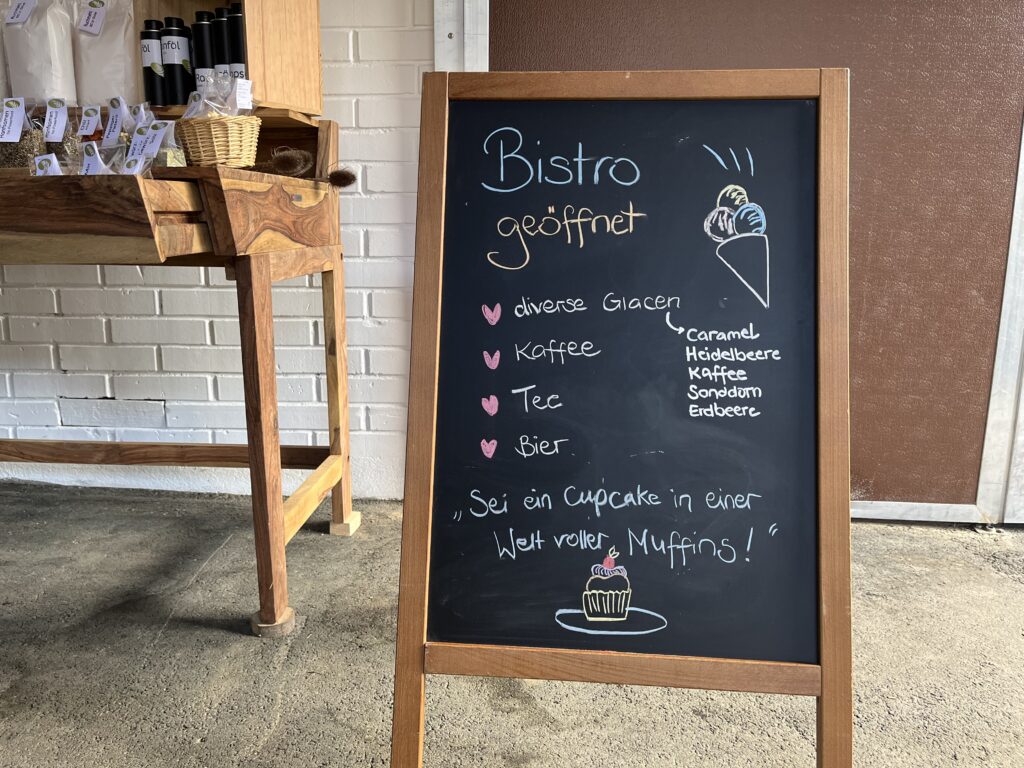 Bistro
geöffnet
diverse Glacen
Caramel
Heidelbeere
Kaffee
Sanddorn
Erdbeere
Kaffee
Tee
Bier.
„Sei ein Cupcake in einer
Welt voller Muffins!“